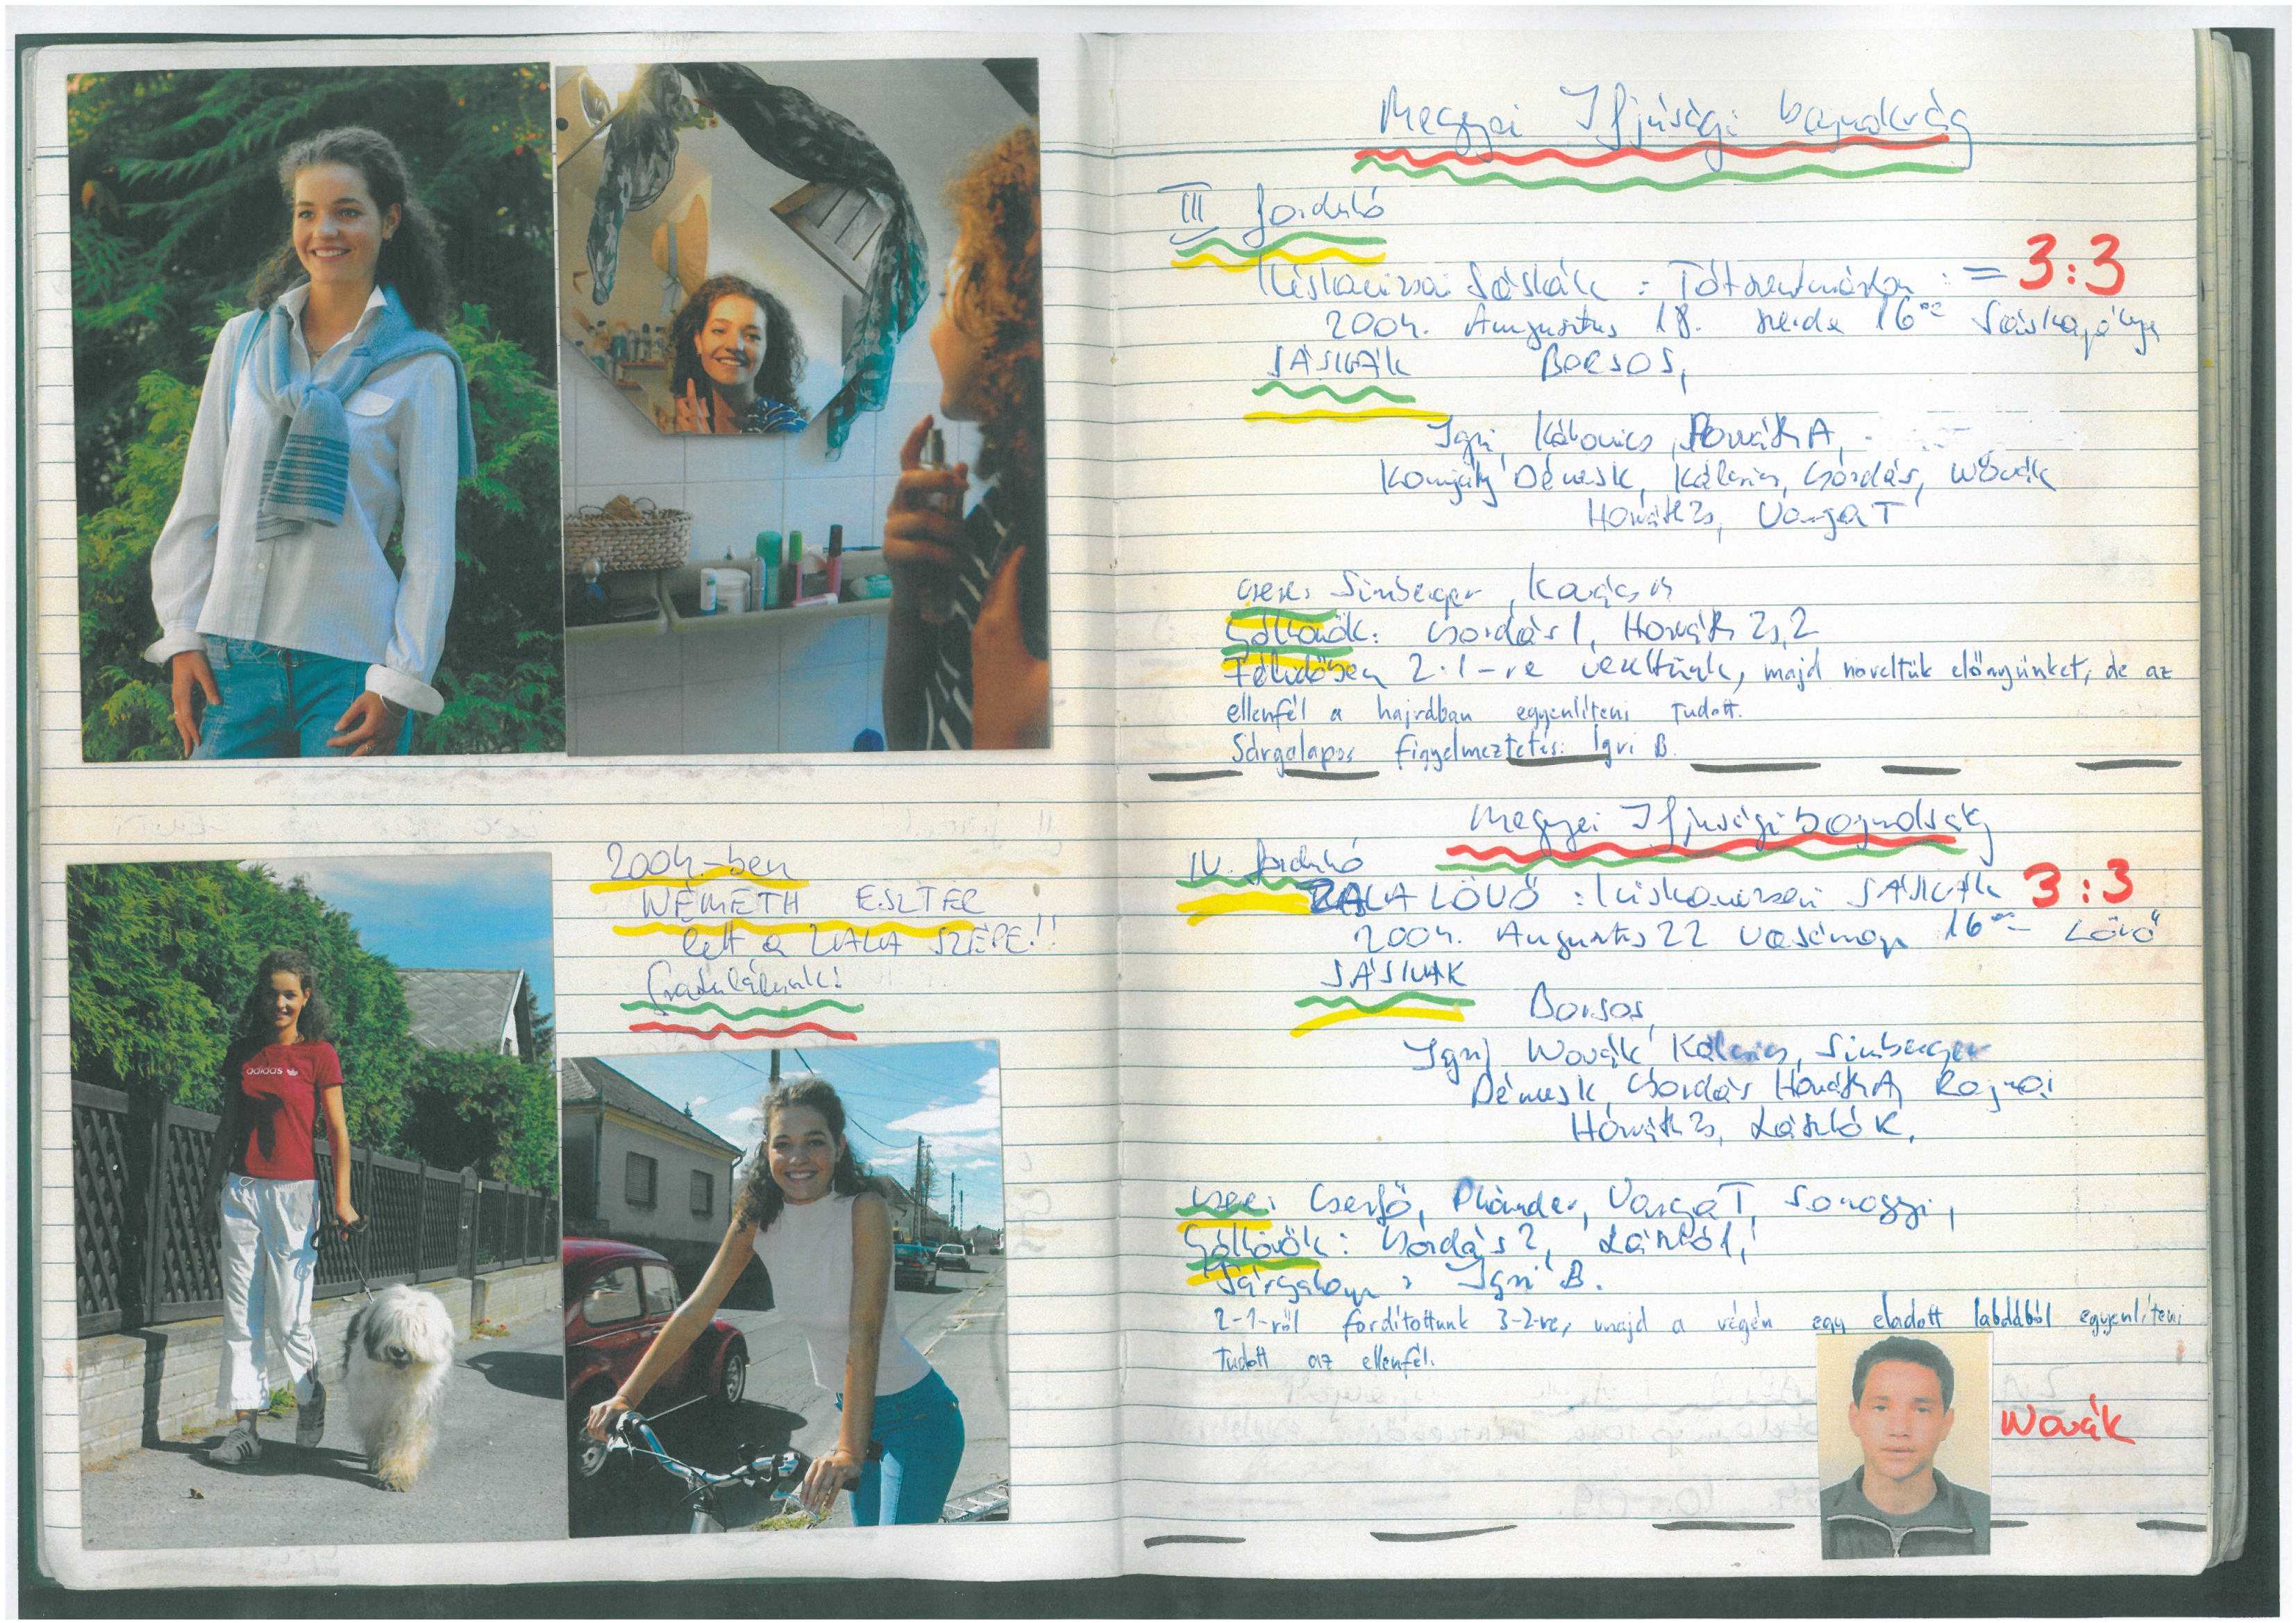 2004.-ben
NÉMETH ESZTER
lett a ZALA SZÉPE!!
Gratulálunk!
adidas
Megyei Ifjúsági bajnokság
III forduló
Kiskanizsai Sáskák : Tótszentmárton : = 3:3
2004. Augusztus 18. szerda 16 Sáskapálya
SÁSKÁK BORSOS,
Igri, Kálovics, Horváth A,
Komjáty Démusk, Kálovics, Csordás, Novák
Horváth Zs, Varga T
csere: Simberger, Kovács
Góllövők: Csordás 1, Horváth Zs, 2
Félidőben 2:1-re vezettünk, majd növeltük előnyünket, de az
ellenfél a hajrában egyenlíteni tudott.
Sárgalapos figyelmeztetés: Igri B.
Megyei Ifjúsági bajnokság
IV. forduló
ZALALÖVŐ : Kiskanizsai SÁSKÁK 3:3
2004. Augusztus 22 vasárnap 16 Lövő
SÁSKÁK
Borsos,
Igri, Novák Kálovics, Simberger
Démusk, Csordás Horváth A, Rajnai
Horváth Zs, László K,
csere: Cserfő, Plánder, Varga T, Somogyi,
Góllövők: Csordás 2, László 1,
Sárgalap: Igri B.
2-1-ről fordítottunk 3-2-re, majd a végén egy eladott labdából egyenlíteni
tudott az ellenfél.
Novák